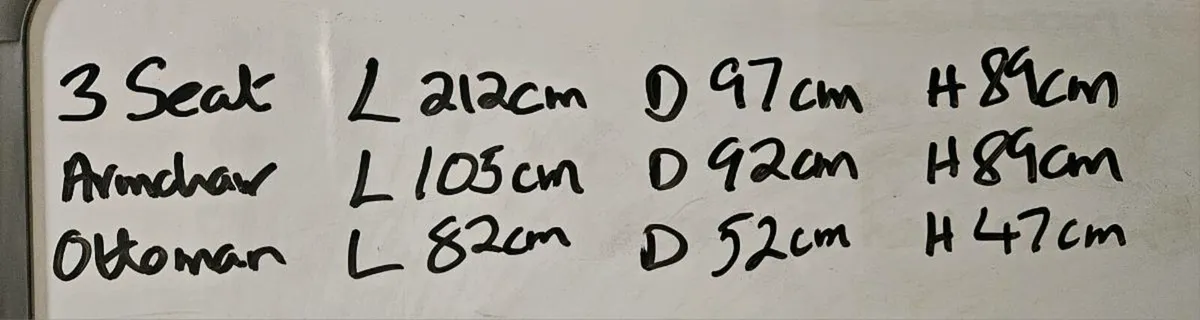 3 Seat L 212cm D 97cm H 89cm
Armchair L 105cm D 92cm H 89cm
Ottoman L 82cm D 52cm H 47cm